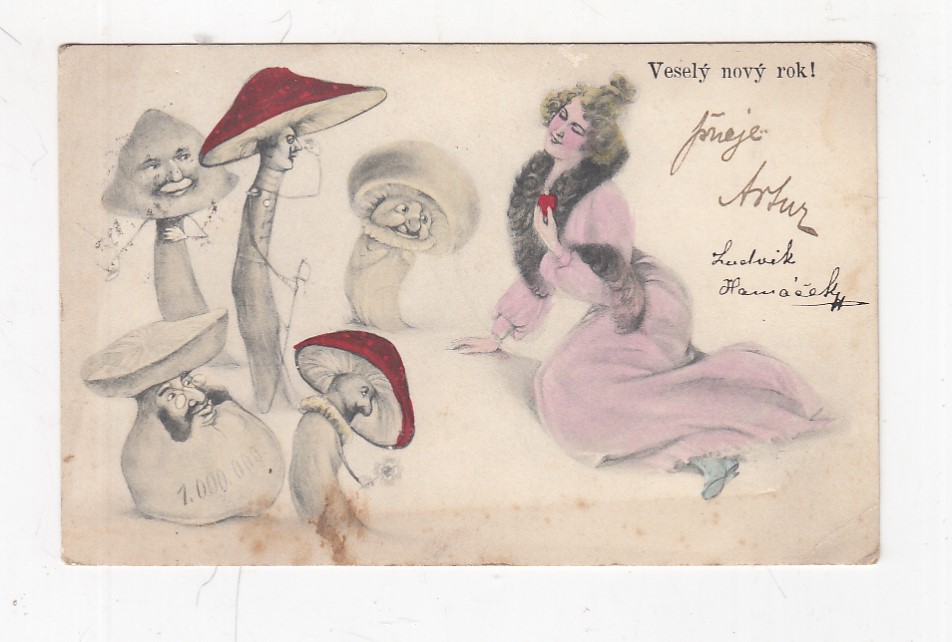 Veselý nový rok!
přeje
Artur
Ludvik
Hamáček
1.000.000